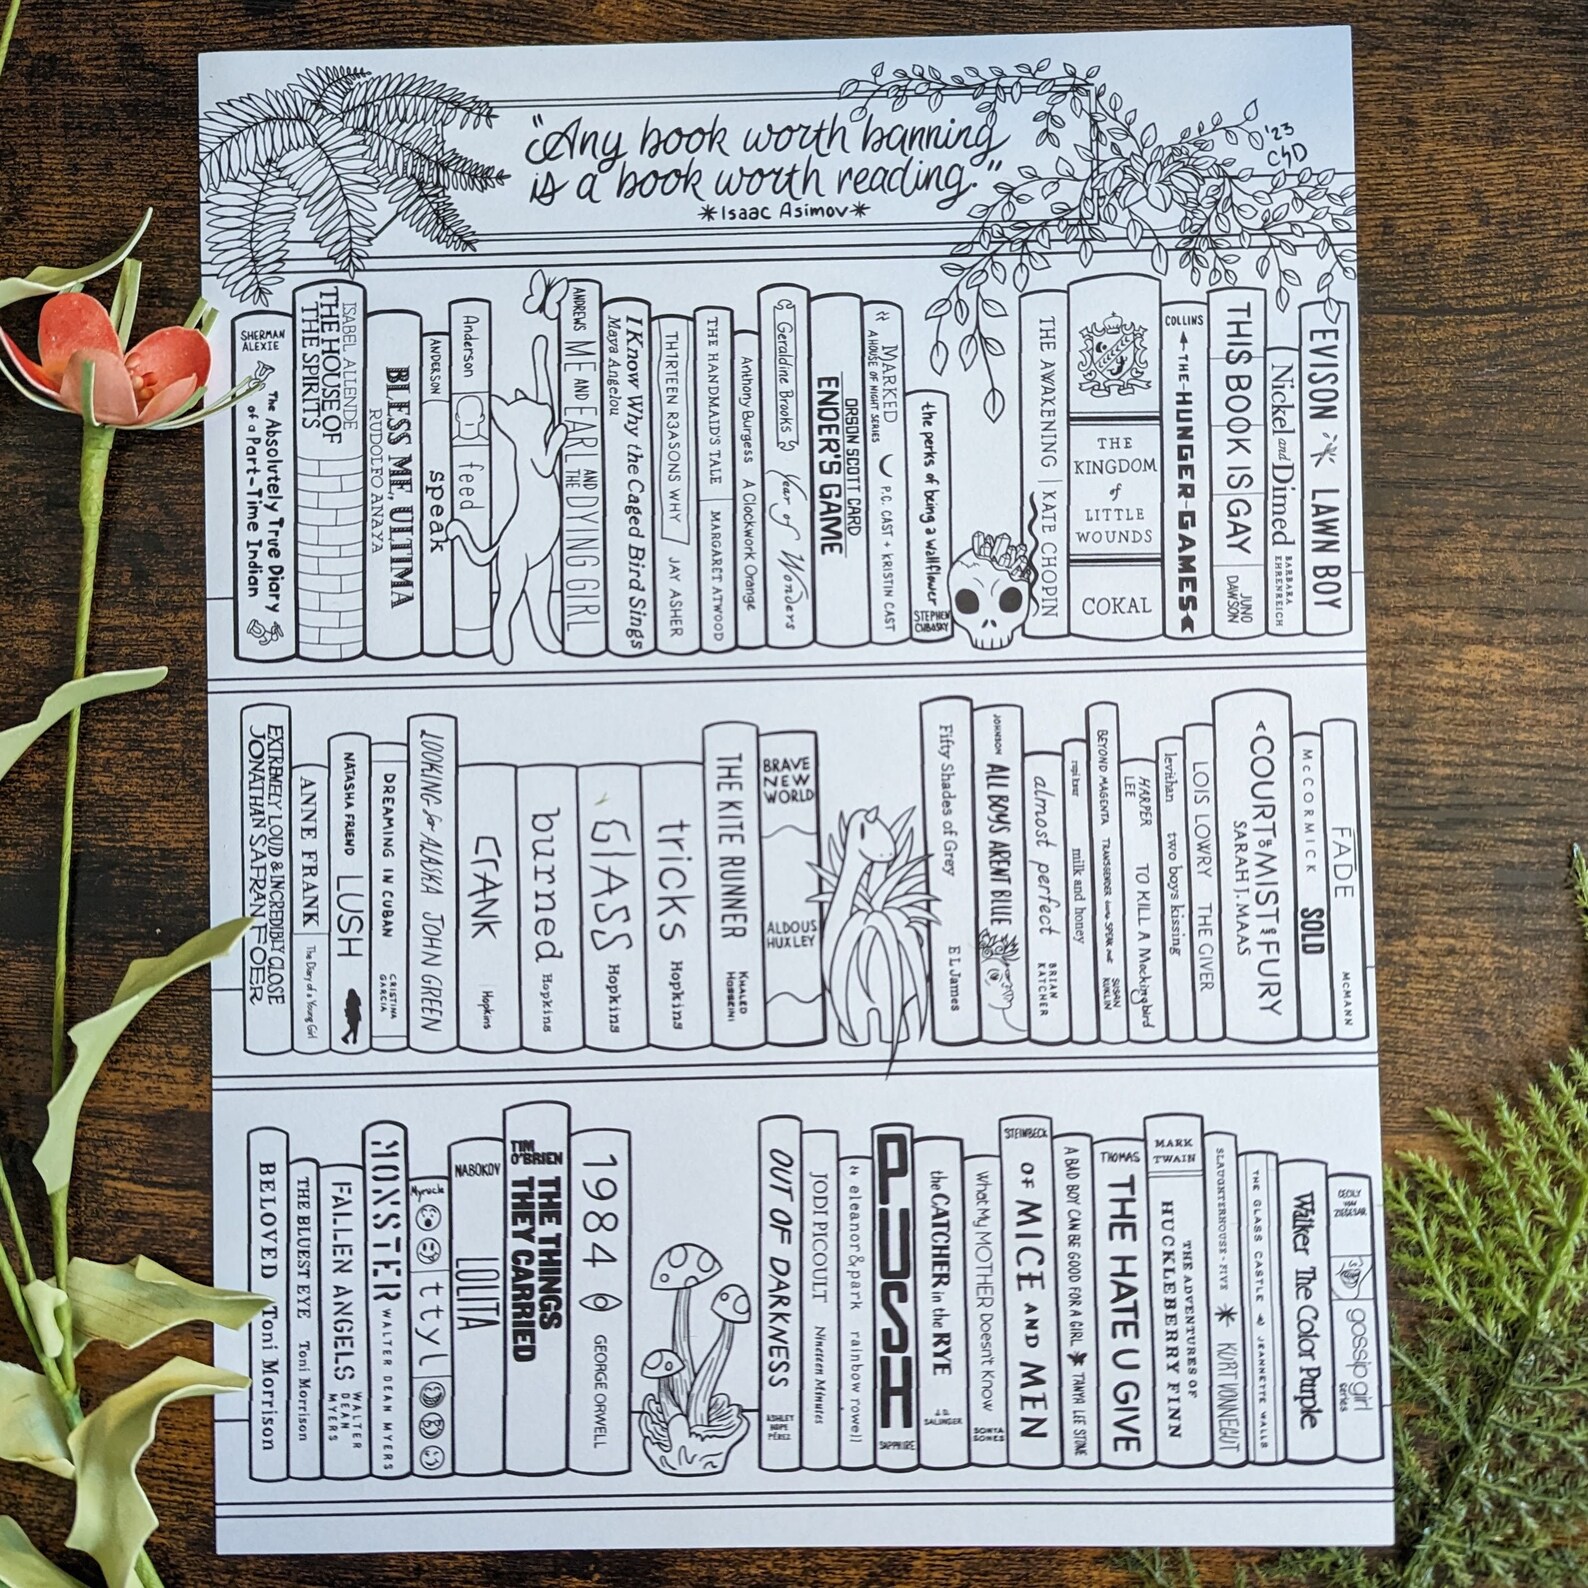 "Any book worth banning
is a book worth reading."
*Isaac Asimov*
'23
CSD
SHERMAN
ALEXIE
The Absolutely True Diary
of a Part-Time Indian
ISABEL ALLENDE
THE HOUSE OF
THE SPIRITS
BLESS ME, ULTIMA
RUDOLFO ANAYA
ANDERSON speak
Anderson feed
ANDREWS ME AND EARL AND THE DYING GIRL
I Know Why the Caged Bird Sings
Maya Angelou
TH1RTEEN R3ASONS WHY JAY ASHER
THE HANDMAID'S TALE MARGARET ATWOOD
Anthony Burgess A Clockwork Orange
Geraldine Brooks Year of Wonders
ORSON SCOTT CARD
ENDER'S GAME
MARKED
A HOUSE OF NIGHT SERIES
P.C. CAST + KRISTIN CAST
the perks of being a wallflower
STEPHEN
CHBOSKY
THE AWAKENING KATE CHOPIN
THE
KINGDOM
of
LITTLE
WOUNDS
COKAL
COLLINS THE HUNGER GAMES
THIS BOOK IS GAY
JUNO
DAWSON
Nickel and Dimed
BARBARA
EHRENREICH
EVISON LAWN BOY
EXTREMELY LOUD & INCREDIBLY CLOSE
JONATHAN SAFRAN FOER
ANNE FRANK The Diary of a Young Girl
NATASHA FRIEND LUSH
DREAMING IN CUBAN
CRISTINA
GARCIA
LOOKING for ALASKA JOHN GREEN
CRANK Hopkins
burned Hopkins
GLASS Hopkins
tricks Hopkins
THE KITE RUNNER
KHALED
HOSSEINI
BRAVE
NEW
WORLD
ALDOUS
HUXLEY
Fifty Shades of Grey E L James
JOHNSON ALL BOYS ARENT BLUE
almost perfect
BRIAN
KATCHER
rupi kaur milk and honey
BEYOND MAGENTA TRANSGENDER teens SPEAK out
SUSAN
KUKLIN
HARPER
LEE
TO KILL A Mockingbird
levithan two boys kissing
LOIS LOWRY THE GIVER
A COURT OF MIST AND FURY
SARAH J. MAAS
McCORMICK SOLD
FADE McMANN
BELOVED Toni Morrison
THE BLUEST EYE Toni Morrison
FALLEN ANGELS
WALTER
DEAN
MYERS
MONSTER WALTER DEAN MYERS
Myracle ttyl
NABOKOV LOLITA
TIM
O'BRIEN
THE THINGS
THEY CARRIED
1984 GEORGE ORWELL
OUT OF DARKNESS
ASHLEY
HOPE
PÉREZ
JODI PICOULT Nineteen Minutes
eleanor & park rainbow rowell
PUSH
SAPPHIRE
the CATCHER in the RYE
SALINGER
What My MOTHER Doesn't Know
SONYA
SONES
STEINBECK OF MICE AND MEN
A BAD BOY CAN BE GOOD FOR A GIRL * TANYA LEE STONE
THOMAS THE HATE U GIVE
MARK
TWAIN
THE ADVENTURES OF
HUCKLEBERRY FINN
SLAUGHTERHOUSE-FIVE * KURT VONNEGUT
THE GLASS CASTLE JEANNETTE WALLS
Walker The Color Purple
CECILY
von
ZIEGESAR
gossip girl
series